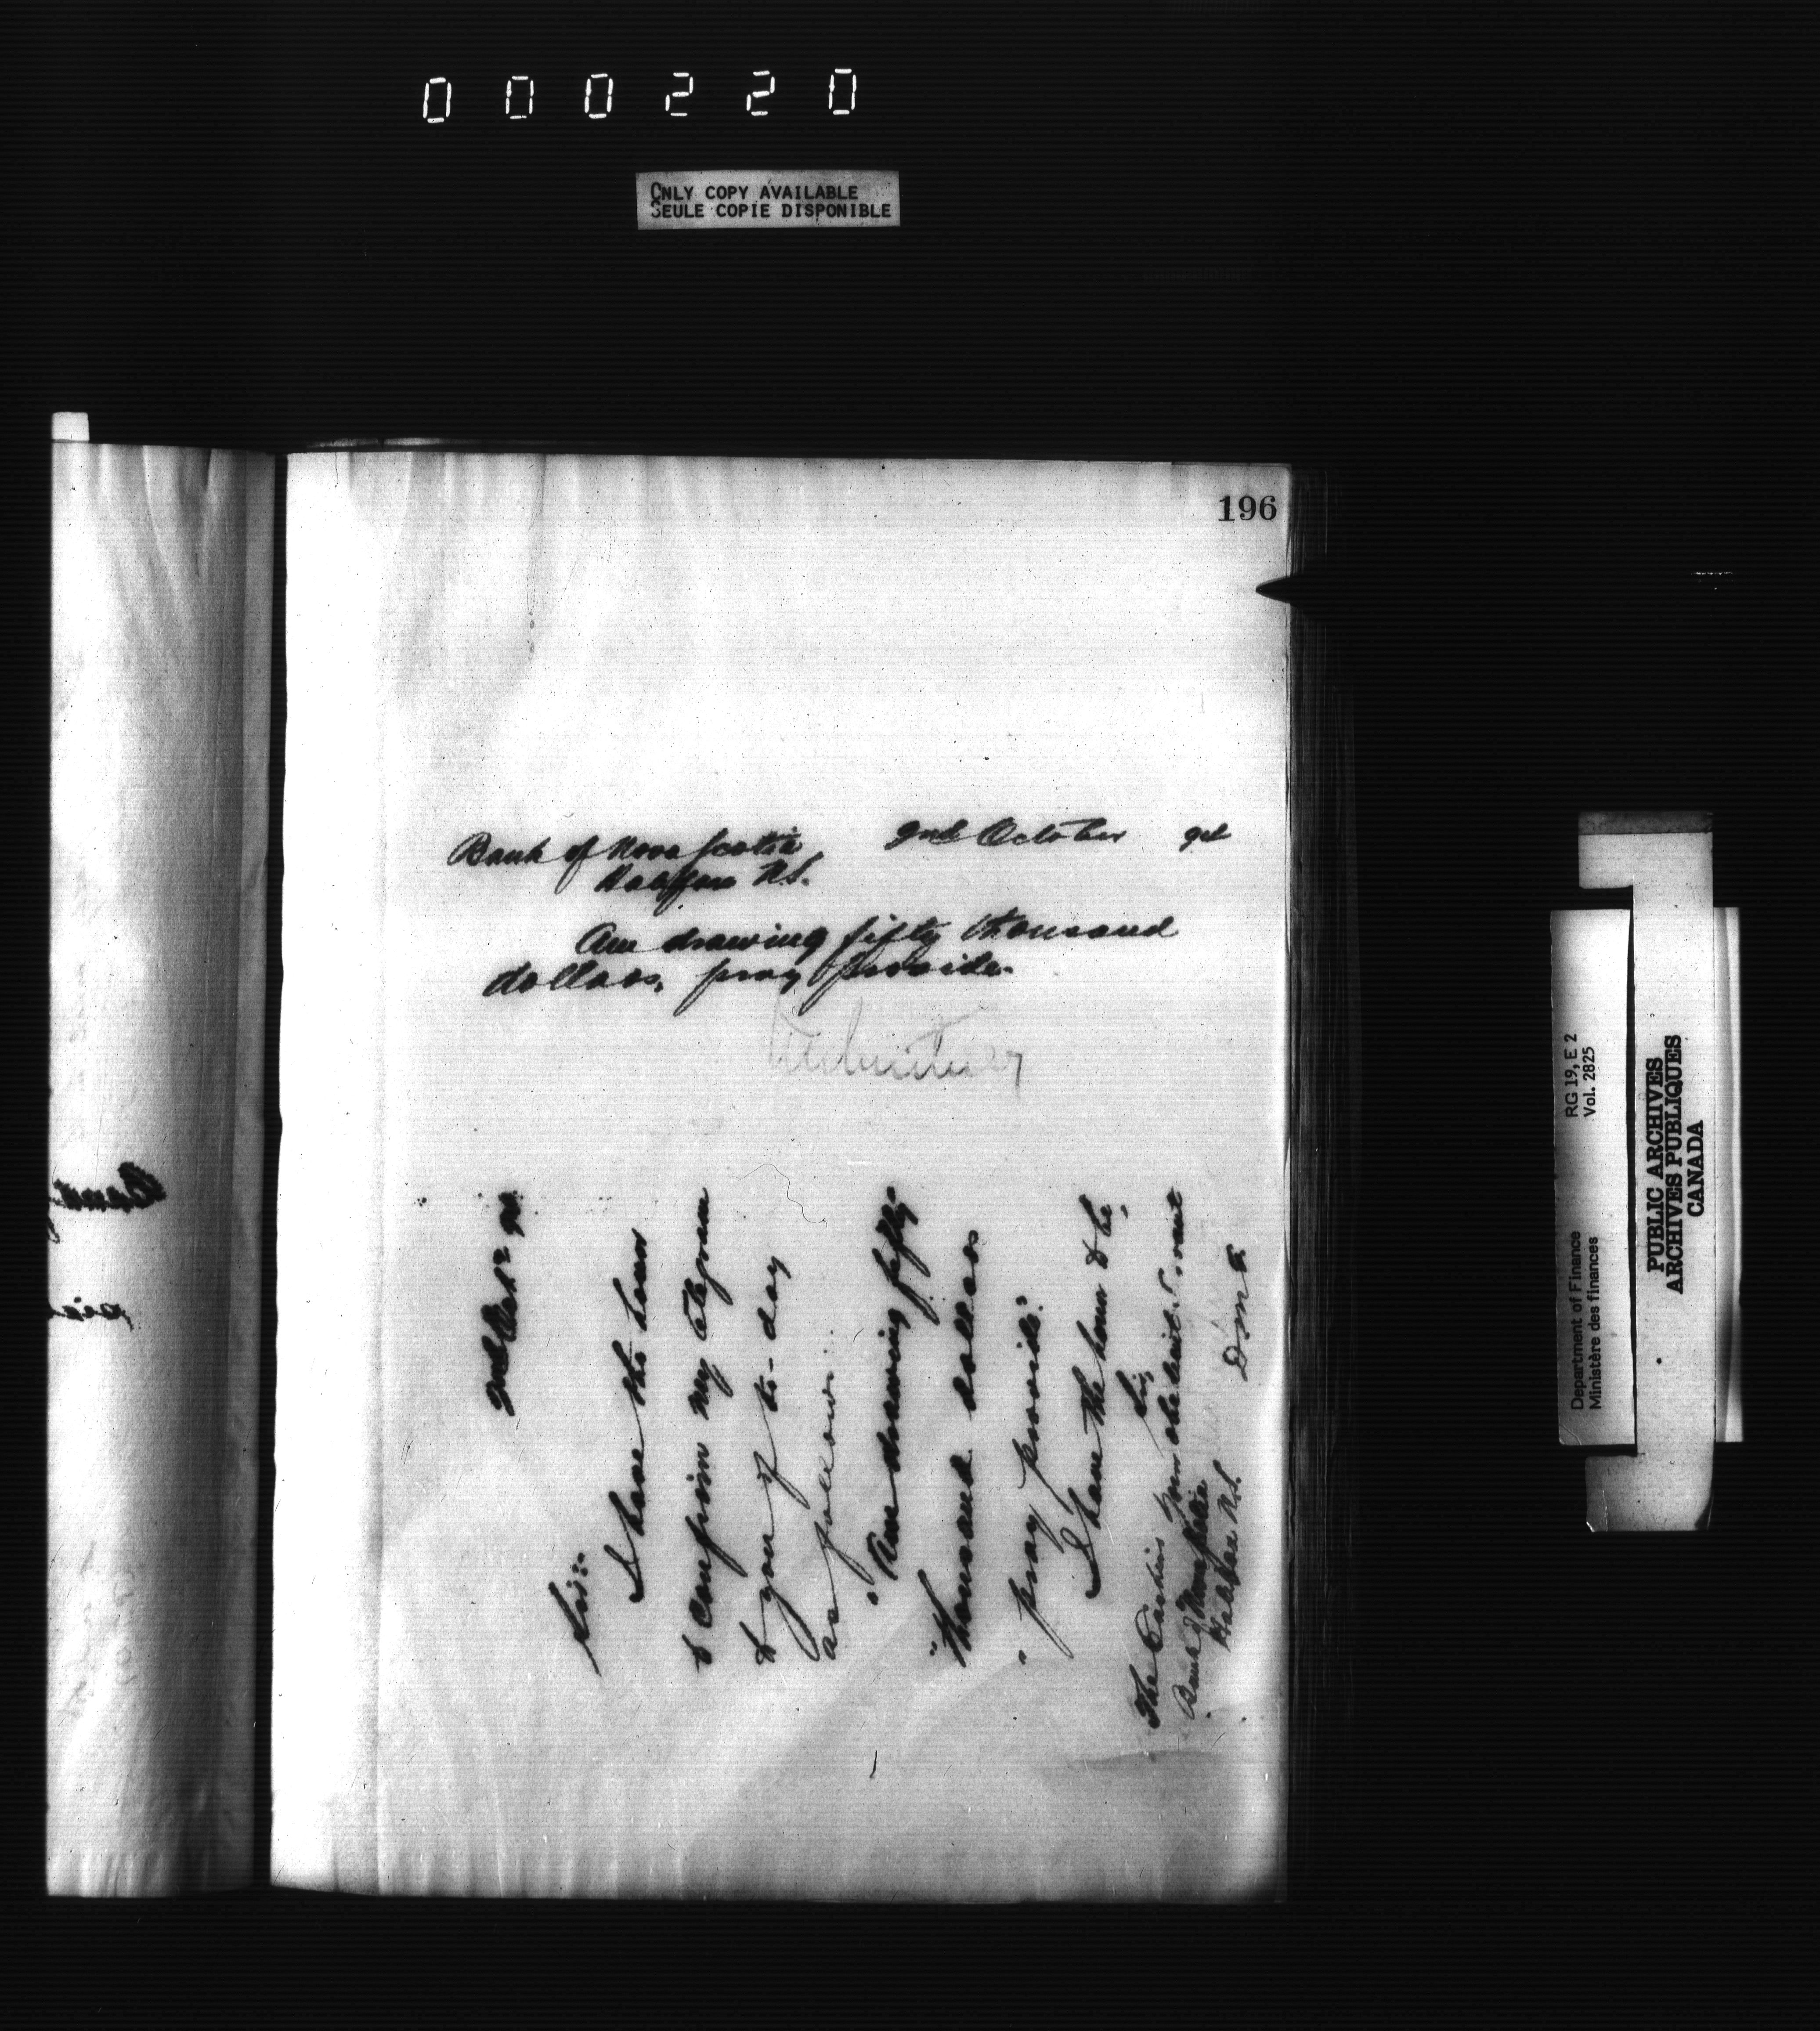 000220
ONLY COPY AVAILABLE
SEULE COPIE DISPONIBLE
196
Bank of Nova Scotia 2nd October
Halifax N.S.
Am drawing fifty thousand
dollars, pray provide.
2nd Oct
Sir:-
I have the honor
to confirm my telegram
to you of to-day
as follows:
"Am drawing fifty
"thousand dollars
"pray provide."
I have the honor to be,
Sir,
Your obedient servant
D.M.F.
The Cashier
Bank of Nova Scotia
Halifax N.S.
Department of Finance RG 19, E 2
Ministère des finances Vol. 2825
PUBLIC ARCHIVES
ARCHIVES PUBLIQUES
CANADA